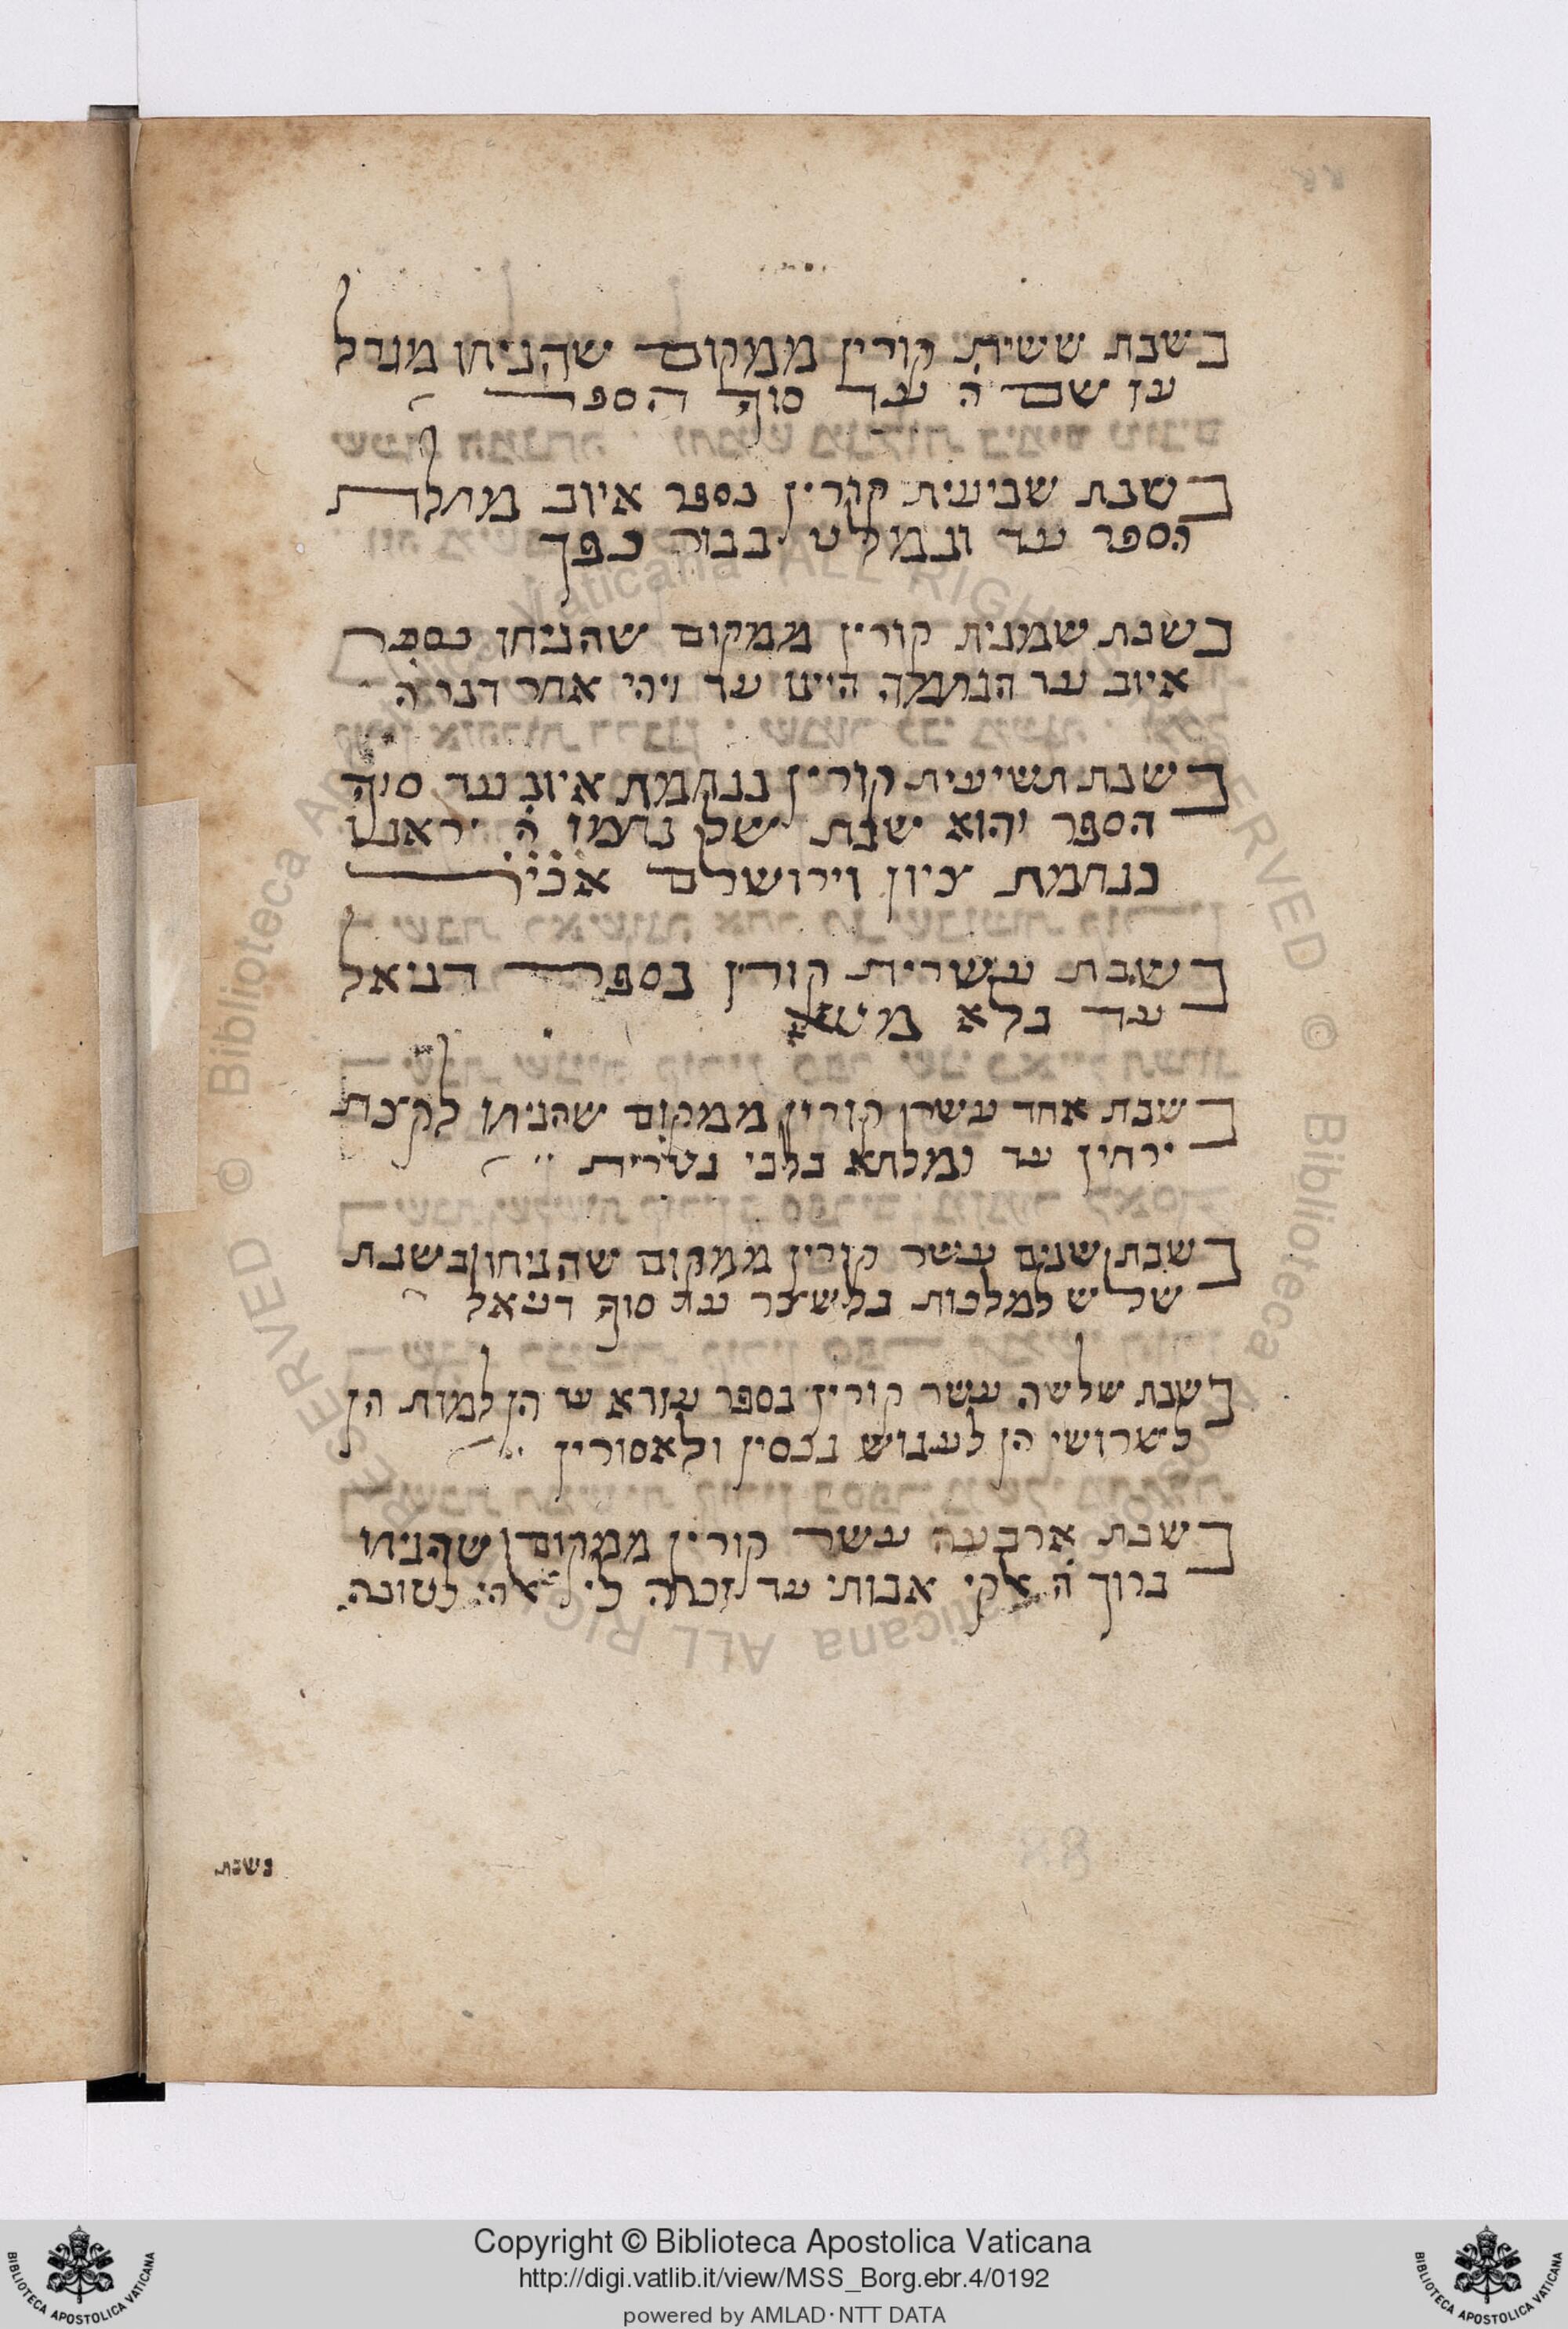 בשבת ששית קורין ממקום שהניחו מגדל
עז שם ה' עד סוף הספר
בשבת שביעית קורין בספר איוב מתלת
הספר עד ובמלט בבור כפך
בשבת שמנית קורין ממקום שהניחו בספר
איוב עד הנחמה היינו עד ויהי אחר דבר ה'
בשבת תשיעית קורין בנחמת איוב עד סוף
הספר והוא שבת של נחמו ה' יראנו
בנחמת ציון וירושלם
בשבת עשרית קורין בספר דניאל
עד כלא
בשבת אחד עשר קורין ממקום שהניחו לקצת
ירחין עד ומלתא בלבי נטרית
בשבת שנים עשר קורין ממקום שהניחו בשנת
שלש למלכות בלשצר עד סוף דניאל
בשבת שלשה עשר קורין בספר עזרא עד הן למות הן
לשרושי הן לענוש נכסין ולאסורין
בשבת ארבעה עשר קורין ממקום שהניחו
ברוך ה' אלקי אבותי עד זכרה לי אלהי לטובה
בשבת
88
Copyright © Biblioteca Apostolica Vaticana
http://digi.vatlib.it/view/MSS_Borg.ebr.4/0192
powered by AMLAD·NTT DATA
BIBLIOTECA APOSTOLICA VATICANA
BIBLIOTECA APOSTOLICA VATICANA